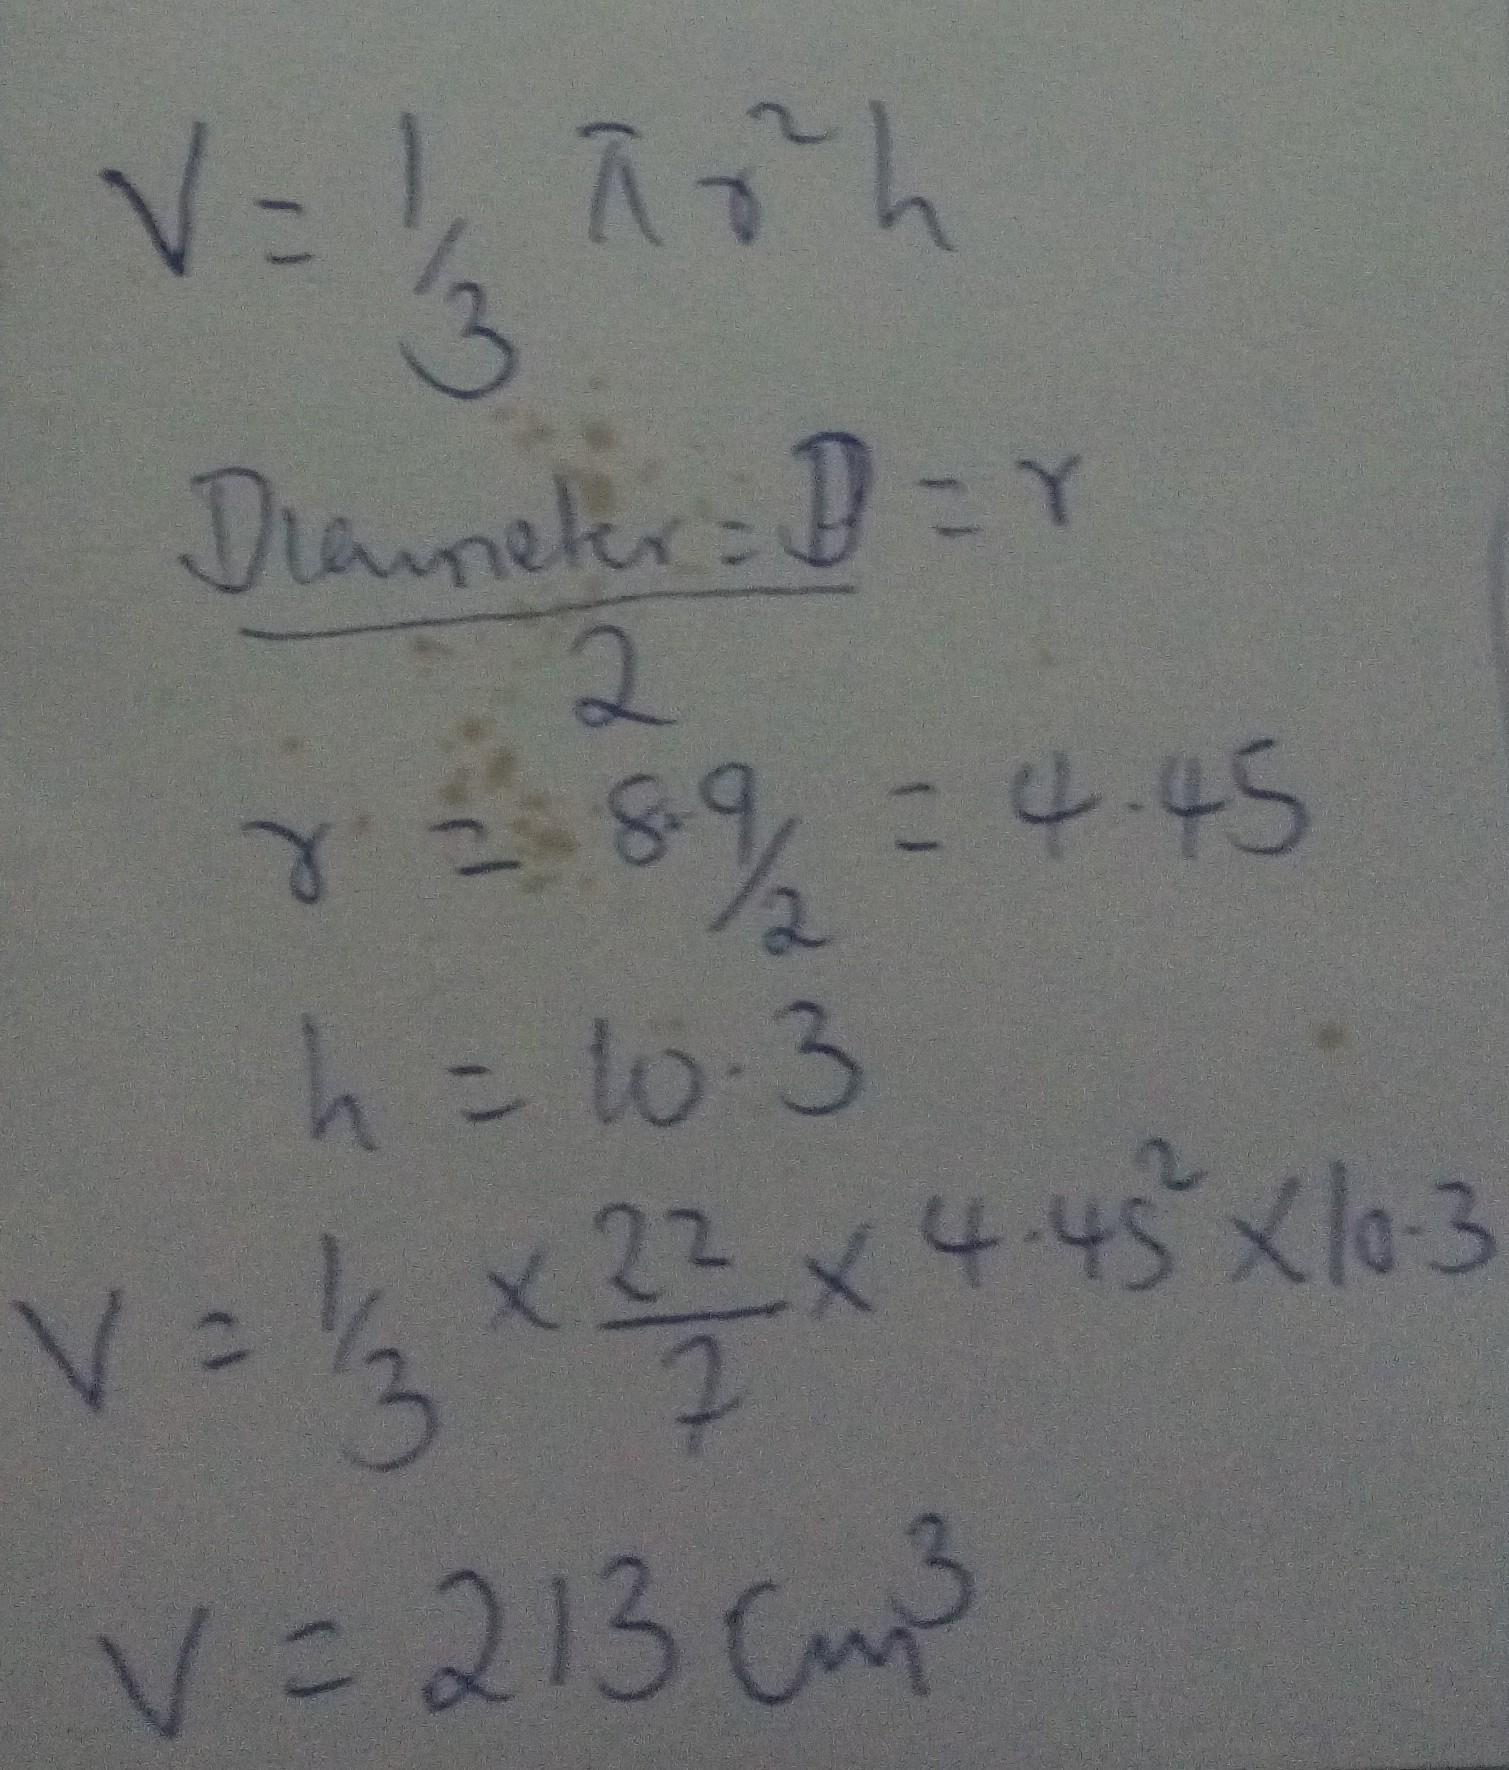 V = 1/3 πr²h
Diameter = D = r
2
r = 8.9/2 = 4.45
h = 10.3
V = 1/3 × 22/7 × 4.45² × 10.3
V = 213 cm³